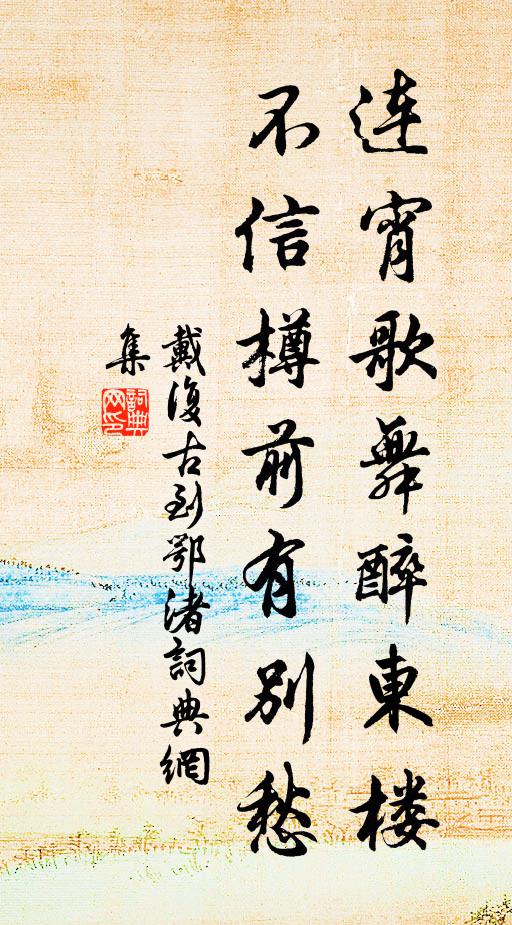 连宵歌舞醉東楼
不信樽前有别愁
戴復古到鄂渚詞典網
集
詞典網印